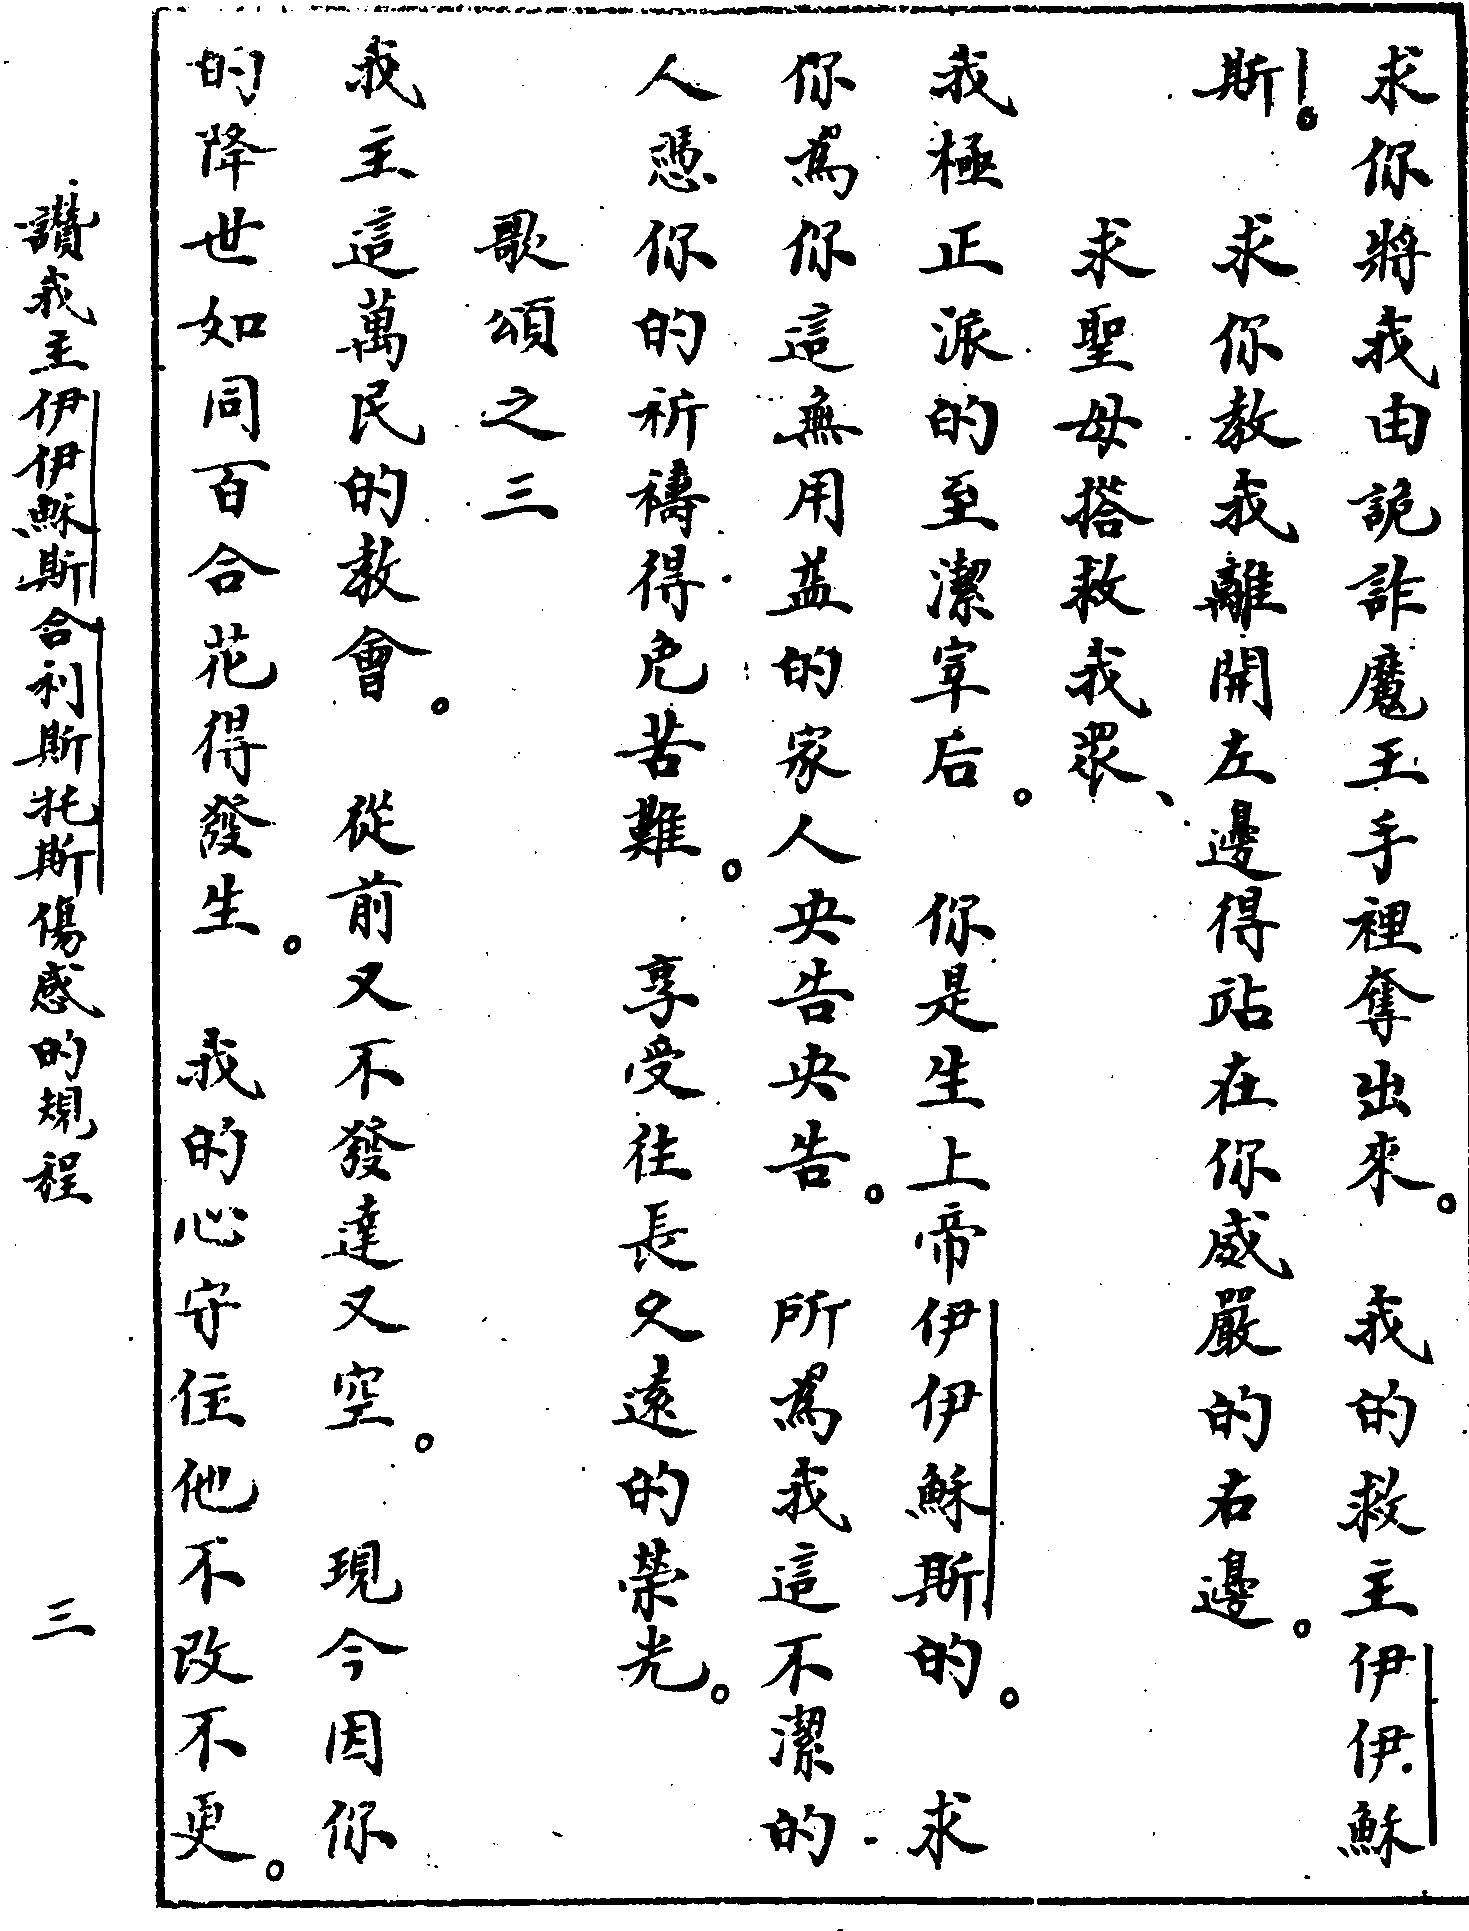 求你將我由詭詐魔王手裡奪出來。我的救主伊伊穌
斯。求你教我離開左邊得站在你威嚴的右邊。
求聖母搭救我衆、
我極正派的至潔宰后。你是生上帝伊伊穌斯的。求
你為你這無用益的家人央告央告。所為我這不潔的
人憑你的祈禱得免苦難。享受往長久遠的榮光。
歌頌之三
我主這萬民的教會。從前又不發達又空。現今因你
的降世如同百合花得發生。我的心守住他不改不更。
讚我主伊伊穌斯合利斯托斯傷感的規程
三